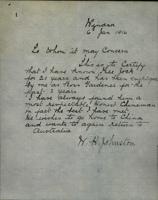 Wynana
6 Jan 1916
To Whom it may Concern
This is to Certify
that I have known Gee Gok
for 21 years and has been employed
by me as Boss Gardener for the
last 9 years
I have always found him a
most respectable & Honest Chinaman
in fact the best I have met
He wishes to go home to China
and wants to again return to
Australia
W. H. Johnston